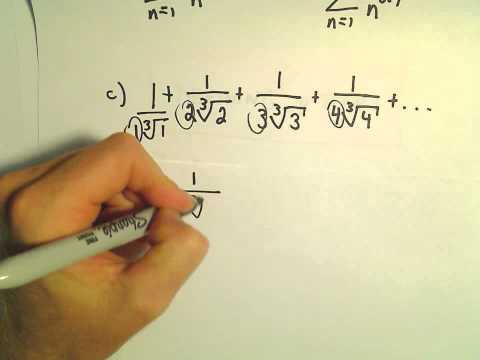 n=1 n n=1 n
c) 1/(1∛1) + 1/(2∛2) + 1/(3∛3) + 1/(4∛4) + ...
1
Sharpie